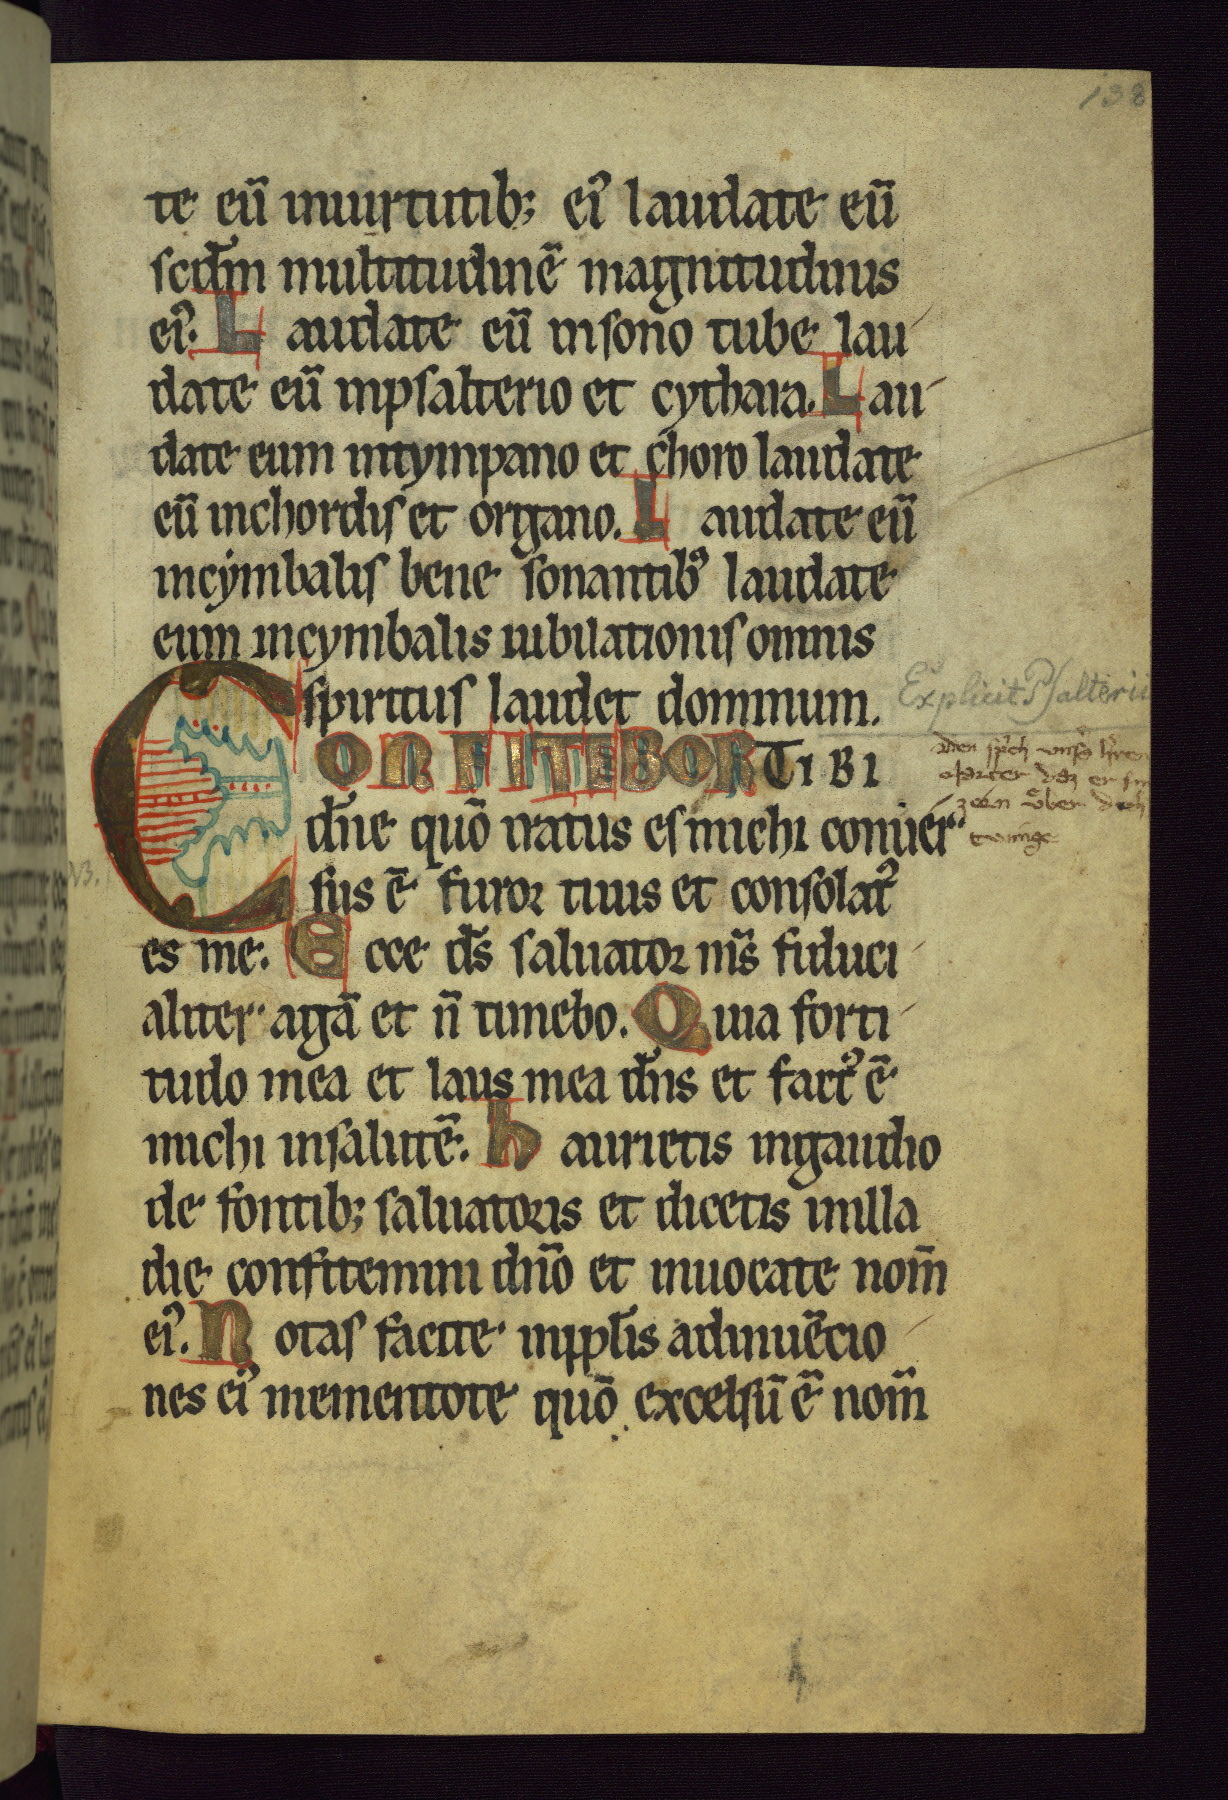 138
te eū inuirtutib; ei᾽ laudate eū
scđm multitudinē magnitudinis
ei᾽. Laudate eū insono tube lau
date eū inpsalterio et cythara. Lau
date eum intympano et choro laudate
eū inchordis et organo. Laudate eū
incymbalis bene sonantib᾽ laudate
eum incymbalis iubilationis omnis
spiritus laudet dominum.
Explicit Psalterii
CONFITEBOR TIBI
dn̄e quō iratus es michi conuer
sus ē furor tuus et consolat᾽
es me. Ecce ds̄ saluator ms̄ fiduci
aliter agā et n̄ timebo. Quia forti
tudo mea et laus mea dn̄s et fact᾽ ē
michi insalutē. Haurietis ingaudio
de fontib; saluatoris et dicetis inilla
die confitemini dn̄o et inuocate nom̄
ei᾽. Notas facite inppl̄is adinuēcio
nes ei᾽ mementote quō excelsū ē nom̄